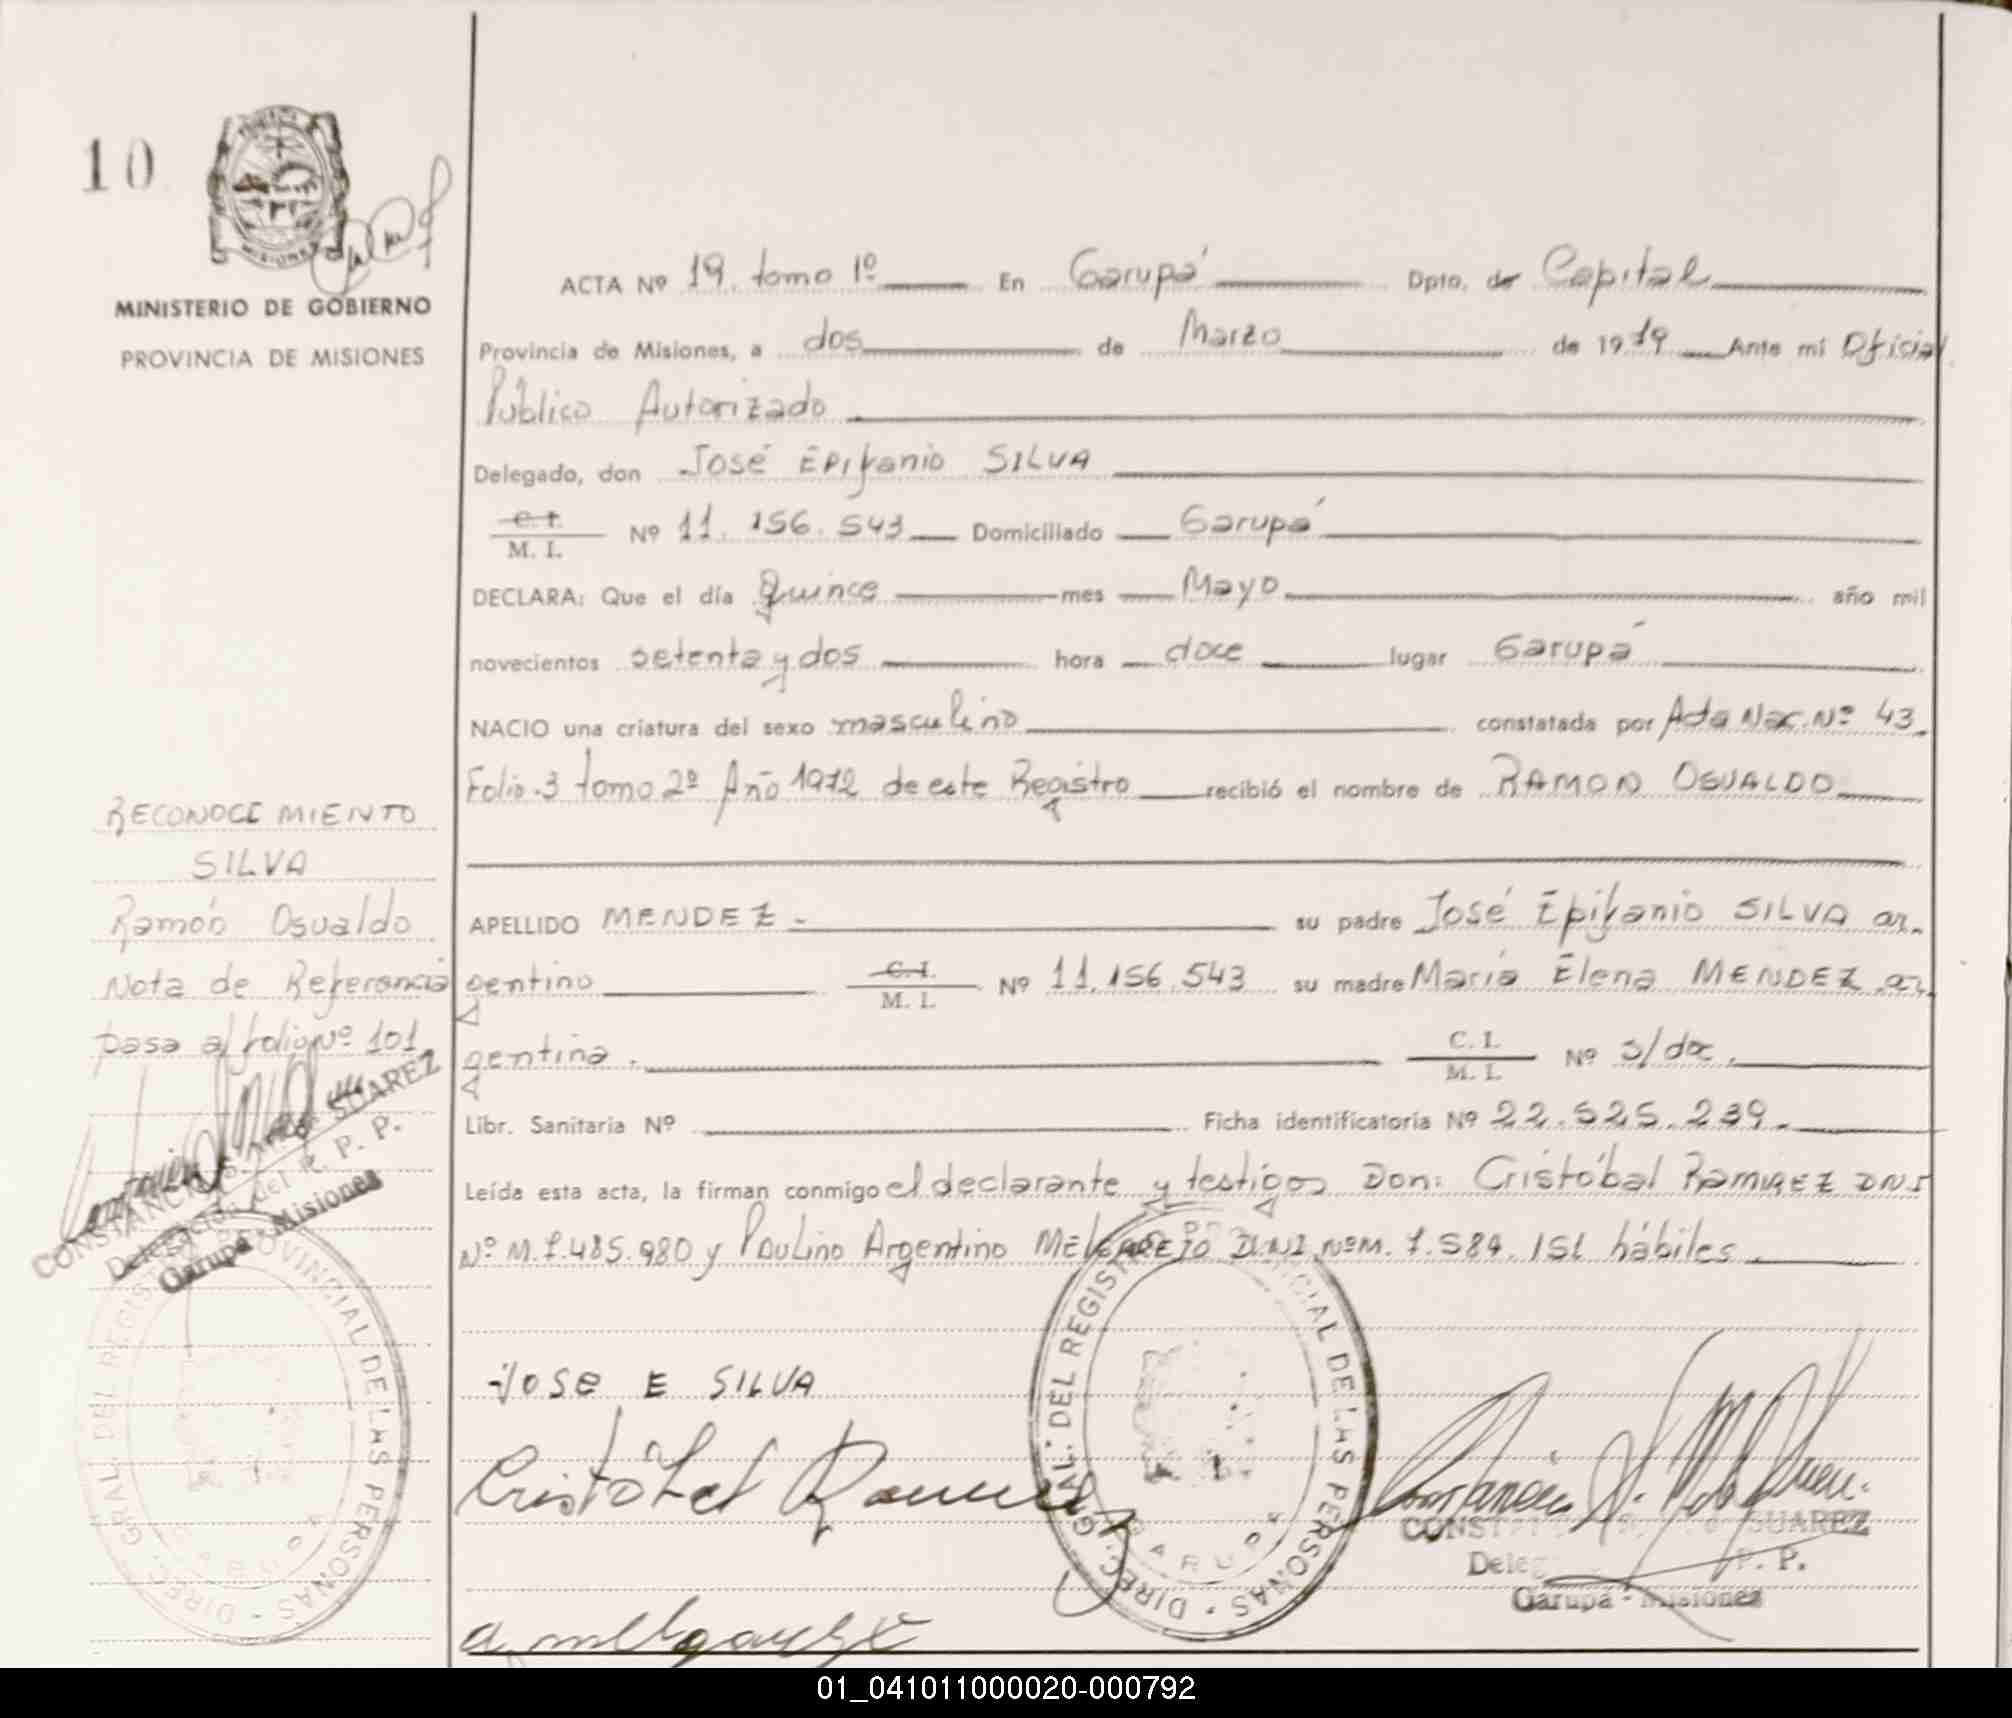 10
MINISTERIO DE GOBIERNO
PROVINCIA DE MISIONES
ACTA Nº 19. tomo 1º En Garupá Dpto. de Capital
Provincia de Misiones, a dos de Marzo de 1979 Ante mí Oficial
Público Autorizado
Delegado, don José Epifanio SILVA
C. I.
M. I. Nº 11.156.543 Domiciliado Garupá
DECLARA: Que el día Quince mes Mayo año mil
novecientos setenta y dos hora doce lugar Garupá
NACIO una criatura del sexo masculino constatada por Acta Nac. Nº 43.
Folio 3 tomo 2º Año 1972 de este Registro recibió el nombre de RAMON OSVALDO
APELLIDO MENDEZ.- su padre José Epifanio SILVA ar-
gentino C. I.
M. I. Nº 11.156.543 su madre María Elena MENDEZ ar-
gentina. C. I.
M. I. Nº s/doc.
Libr. Sanitaria Nº Ficha identificatoria Nº 22.525.239.-
Leída esta acta, la firman conmigo el declarante y testigos Don: Cristóbal RAMIREZ DNI
Nº M.7.485.980 y Paulino Argentino MELGAREJO D.N.I. Nº M. 7.584.151 hábiles.
RECONOCIMIENTO
SILVA
Ramón Osvaldo
Nota de Referencia
pasa al folio Nº 101
CONSTANCIO S. SUAREZ
Delegación del R. P. P.
Garupá - Misiones
DIREC. GRAL. DEL REGISTRO PROVINCIAL DE LAS PERSONAS
GARUPA
JOSE E SILVA
Cristóbal Ramirez
DIREC. GRAL. DEL REGISTRO PROVINCIAL DE LAS PERSONAS
GARUPA
SUAREZ
P. P.
Garupá - Misiones
01_041011000020-000792